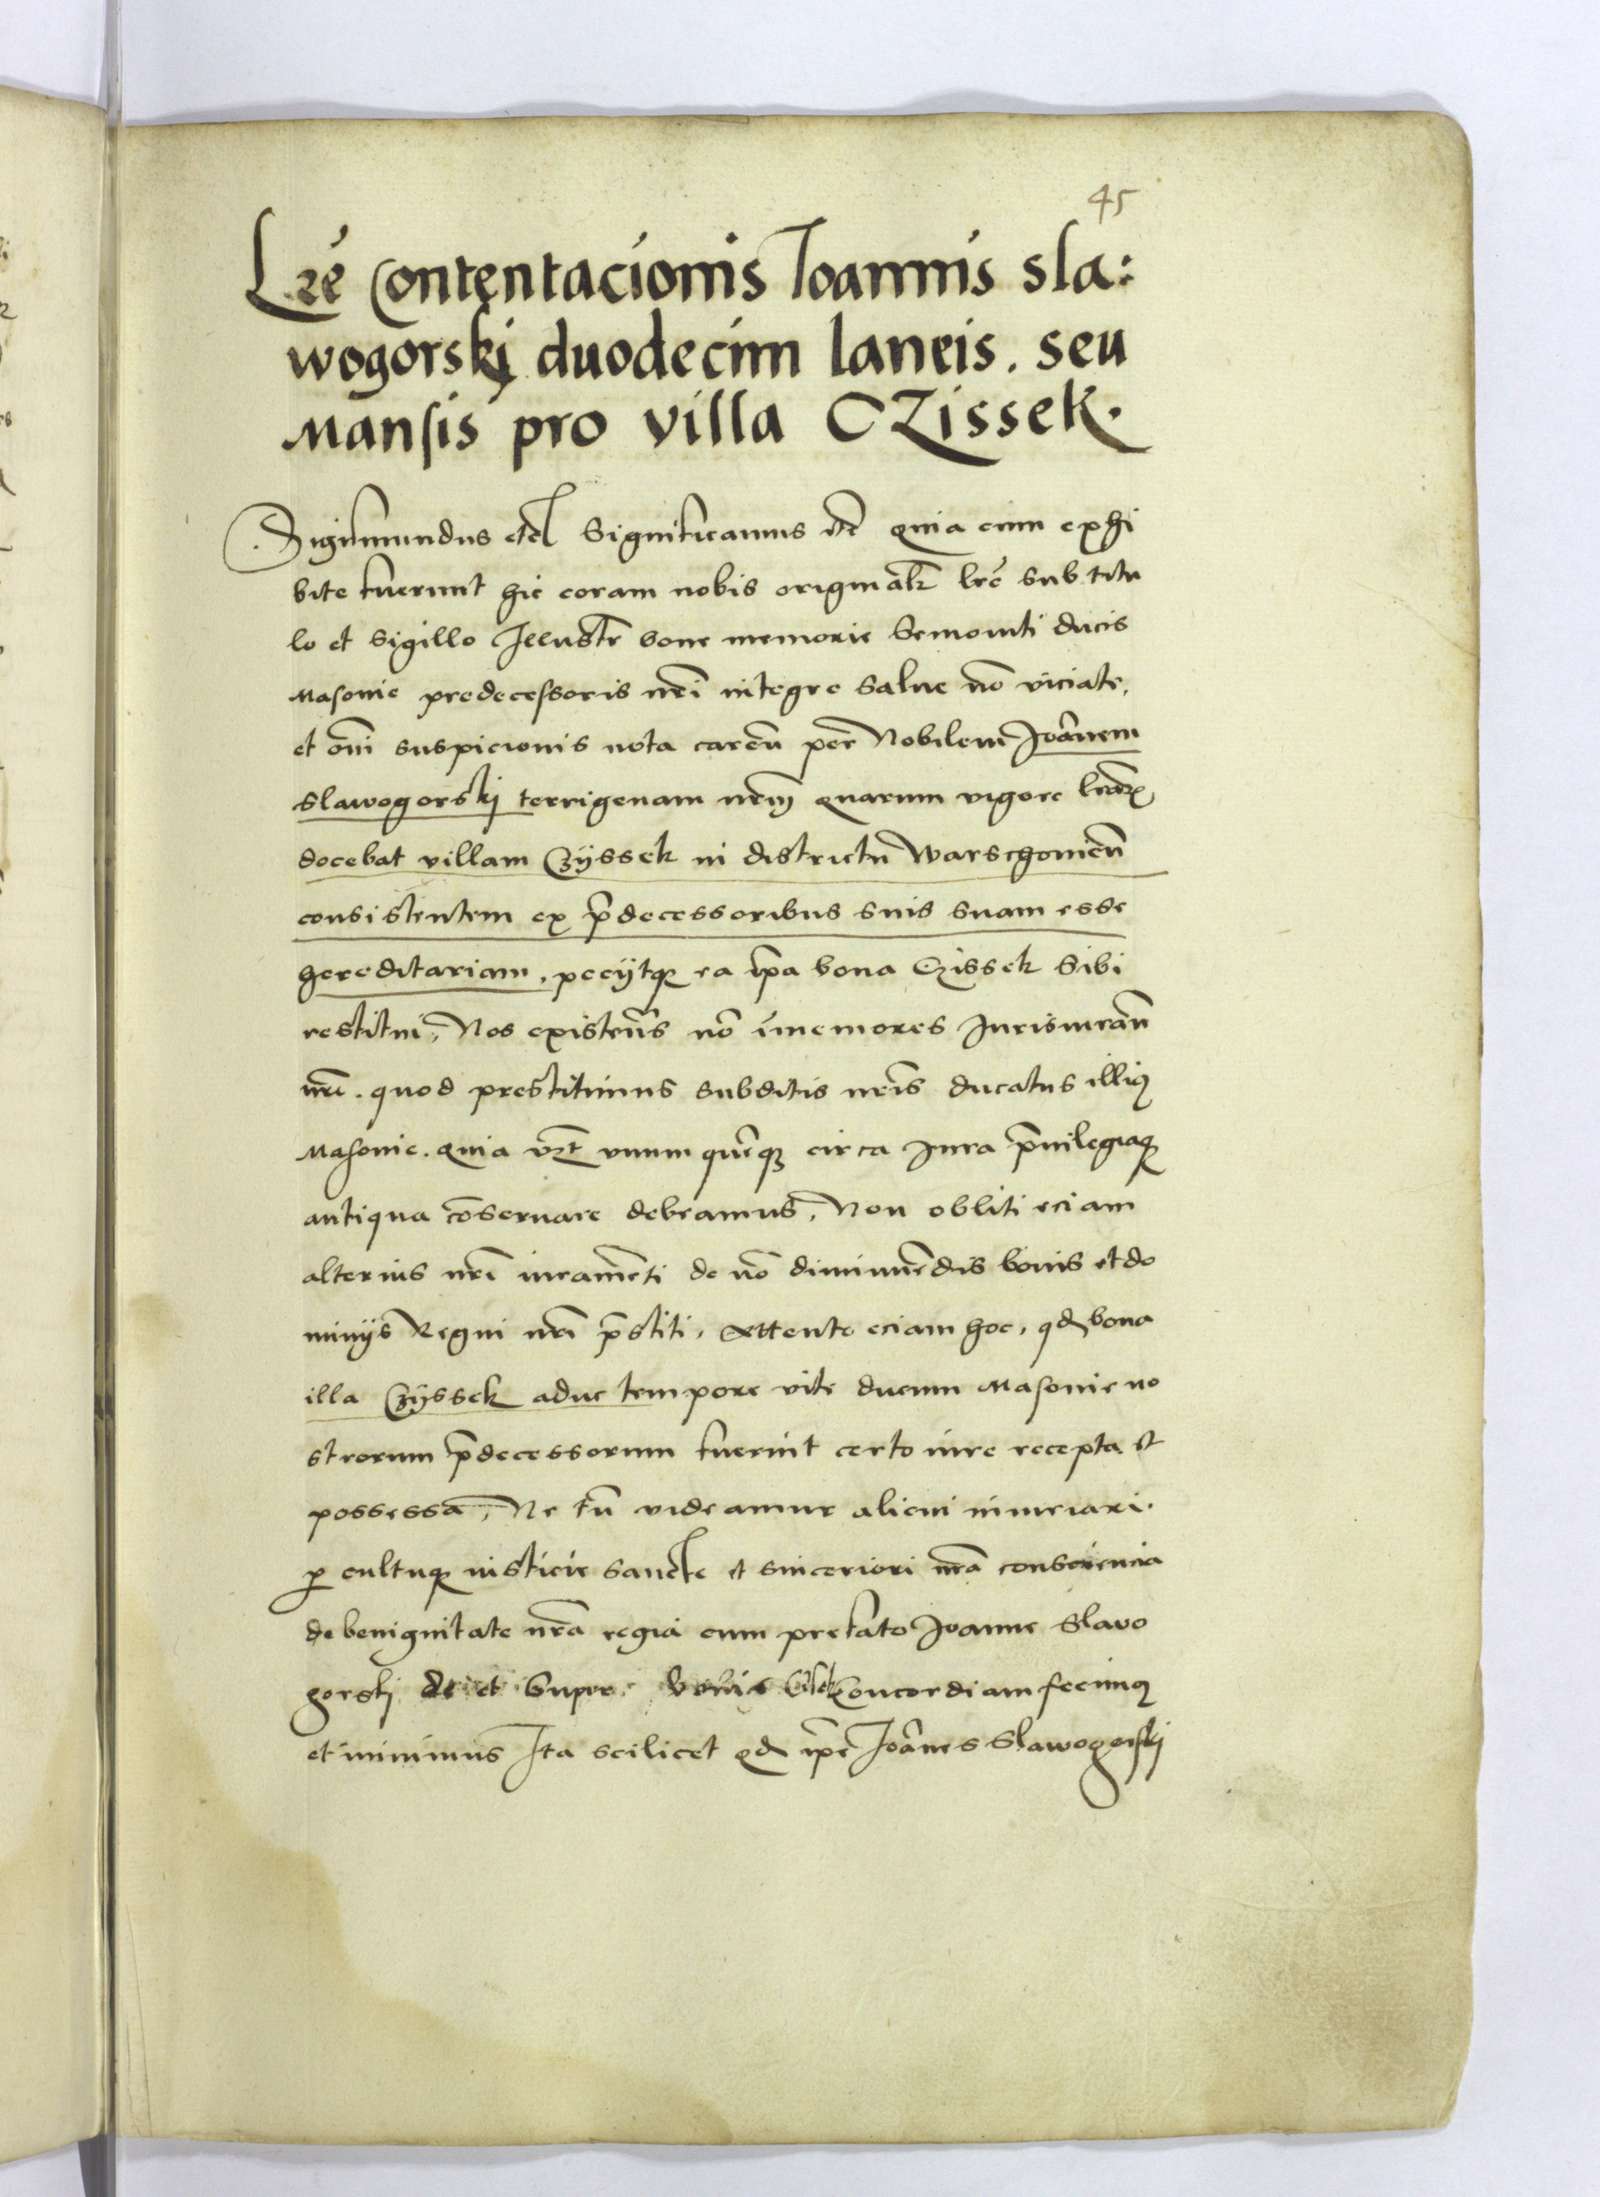 45
Lrē Contentacionis Ioannis sla:
wogorskj duodecim laneis. seu
Mansis pro villa CZissek.
Sigismundus etc Significamus etc Quia cum exhi
bite fuerunt hic coram nobis originales lrē sub titu
lo et Sigillo Illustr bone memorie Semouiti ducis
Masouie predecessoris nri integre Salue nō viciate,
et om̄i suspicionis nota careñ per Nobilem Joānem
Slawogorskj terrigenam nrm̄ quarum vigore lrarz
docebat villam Czÿssek in districtu Warschouieñ
consistentem ex p̄decessoribus suis suam esse
hereditariam, peciitqz ea ip̄a bona Czissek Sibi
restitui, Nos existeñs nō im̄emores Jurisiurañ
nri. quod prestitimus subditis nris ducatus illiq
Masouie. Quia vt unum quēqz circa Jura p̄uilegiaqz
antiqua cōseruare debeamus, Non obliti eciam
alterius nri iuramēti de nō diminuēdis bonis et do
minijs Regni nri p̄stiti, Attento eciam hoc, qd bona
illa Czÿssek aduc tempore vite ducum Masouie no
strorum p̄decessorum fuerint certo iure recepta et
possessa, Ne tn̄ videamur alicui iniuriari.
p cultuqz iusticie sancte et sinceriori nra consciencia
de benignitate nra regia cum prefato Joanne Slawo
gorskj de et Super bonis Concordiam fecimq
et iniuimus Ita scilicet qd ip̄e Joānes Slawogorskj